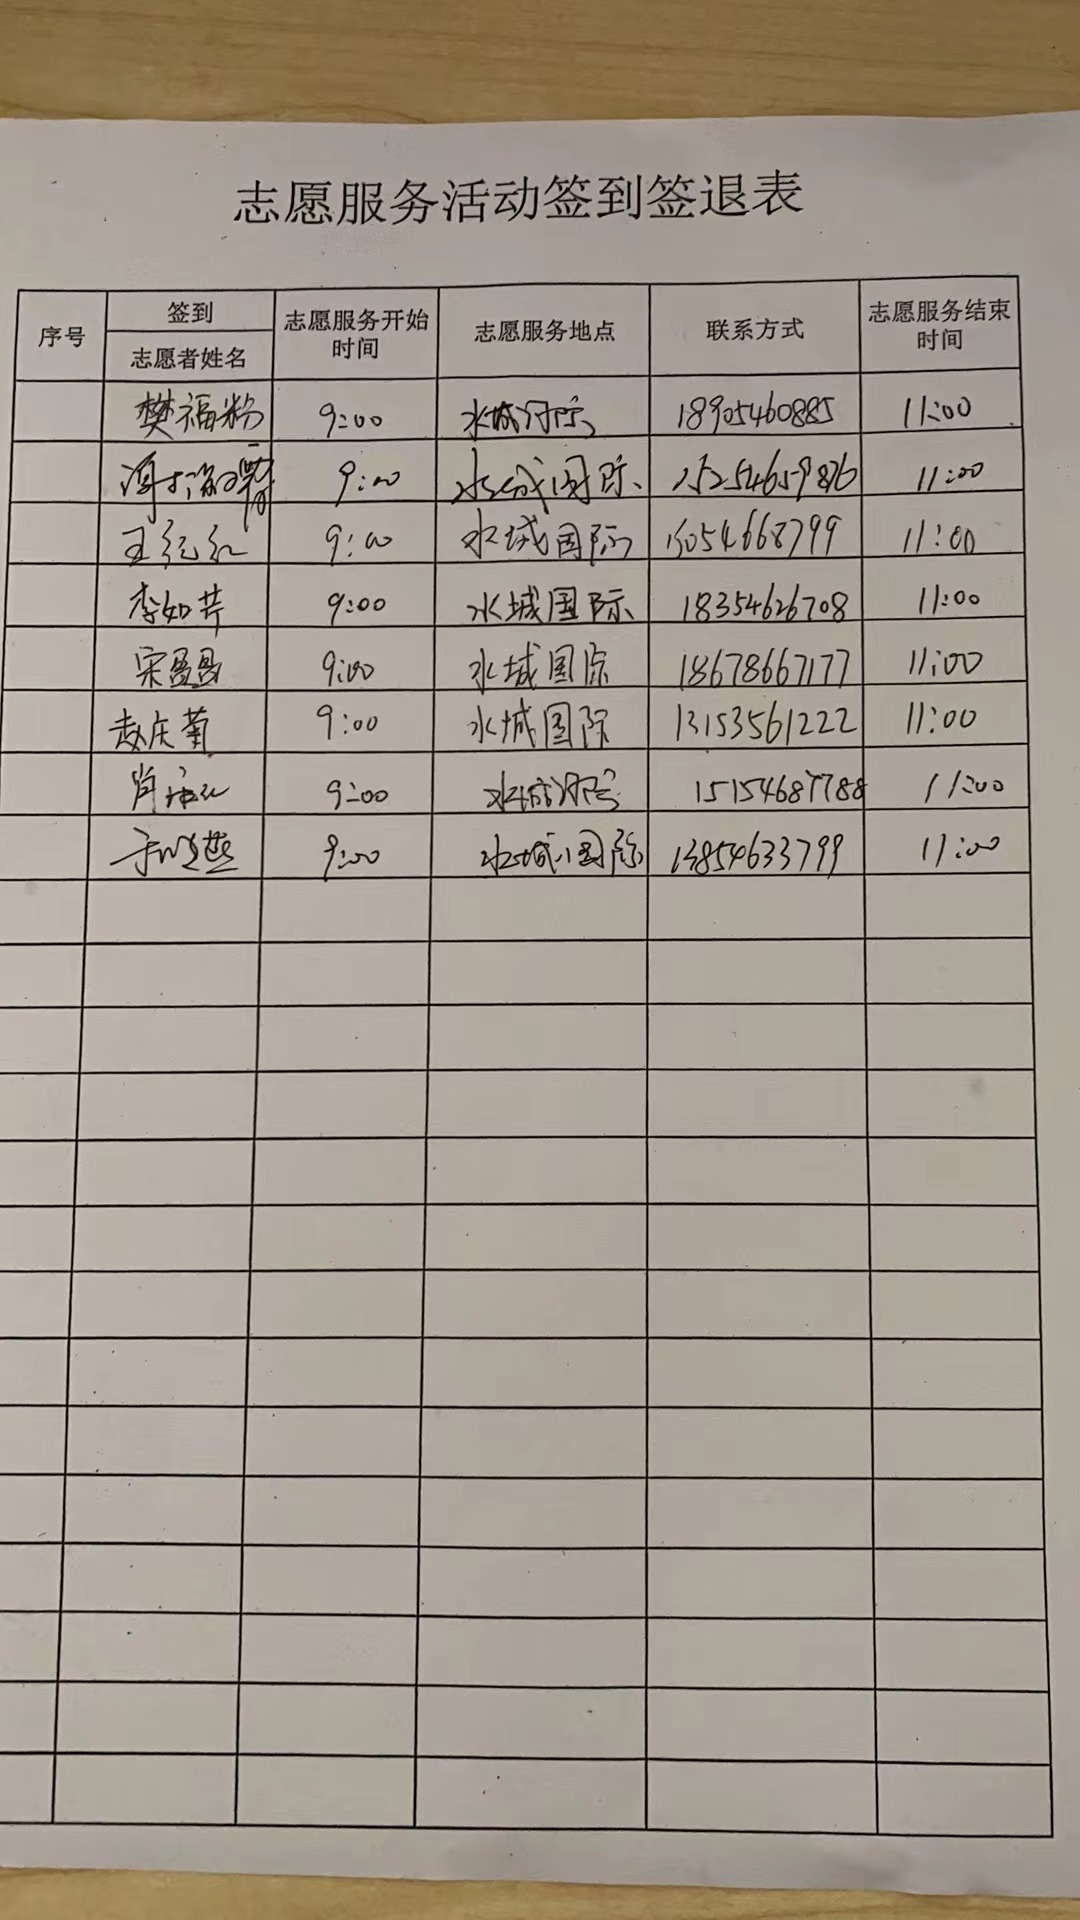 志愿服务活动签到签退表
序号 签到 志愿者姓名 志愿服务开始时间 志愿服务地点 联系方式 志愿服务结束时间
樊福粉 9:00 水城国际 18905460885 11:00
9:00 水城国际 15254659876 11:00
王纪红 9:00 水城国际 13054668799 11:00
李如芹 9:00 水城国际 18354626708 11:00
宋磊磊 9:00 水城国际 18678667177 11:00
赵庆菊 9:00 水城国际 13153561222 11:00
肖 9:00 水城国际 15154687788 11:00
燕 9:00 水城国际 13854633799 11:00